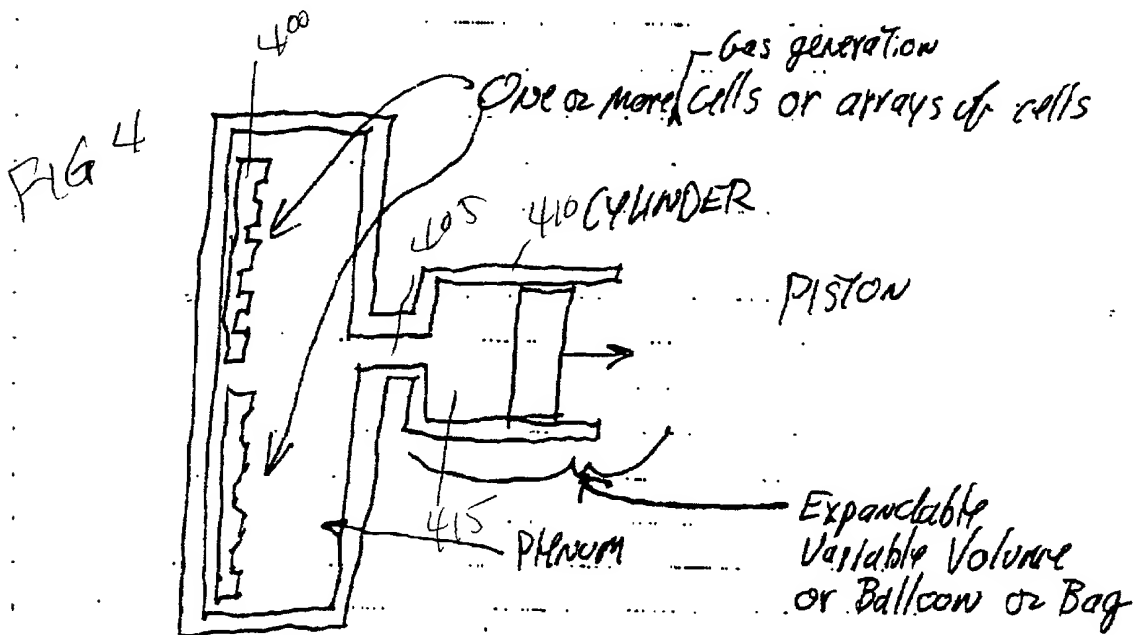 400
Gas generation
One or more cells or arrays of cells
FIG 4
405
410 CYLINDER
PISTON
415
PLENUM
Expandable
Variable Volume
or Balloon or Bag